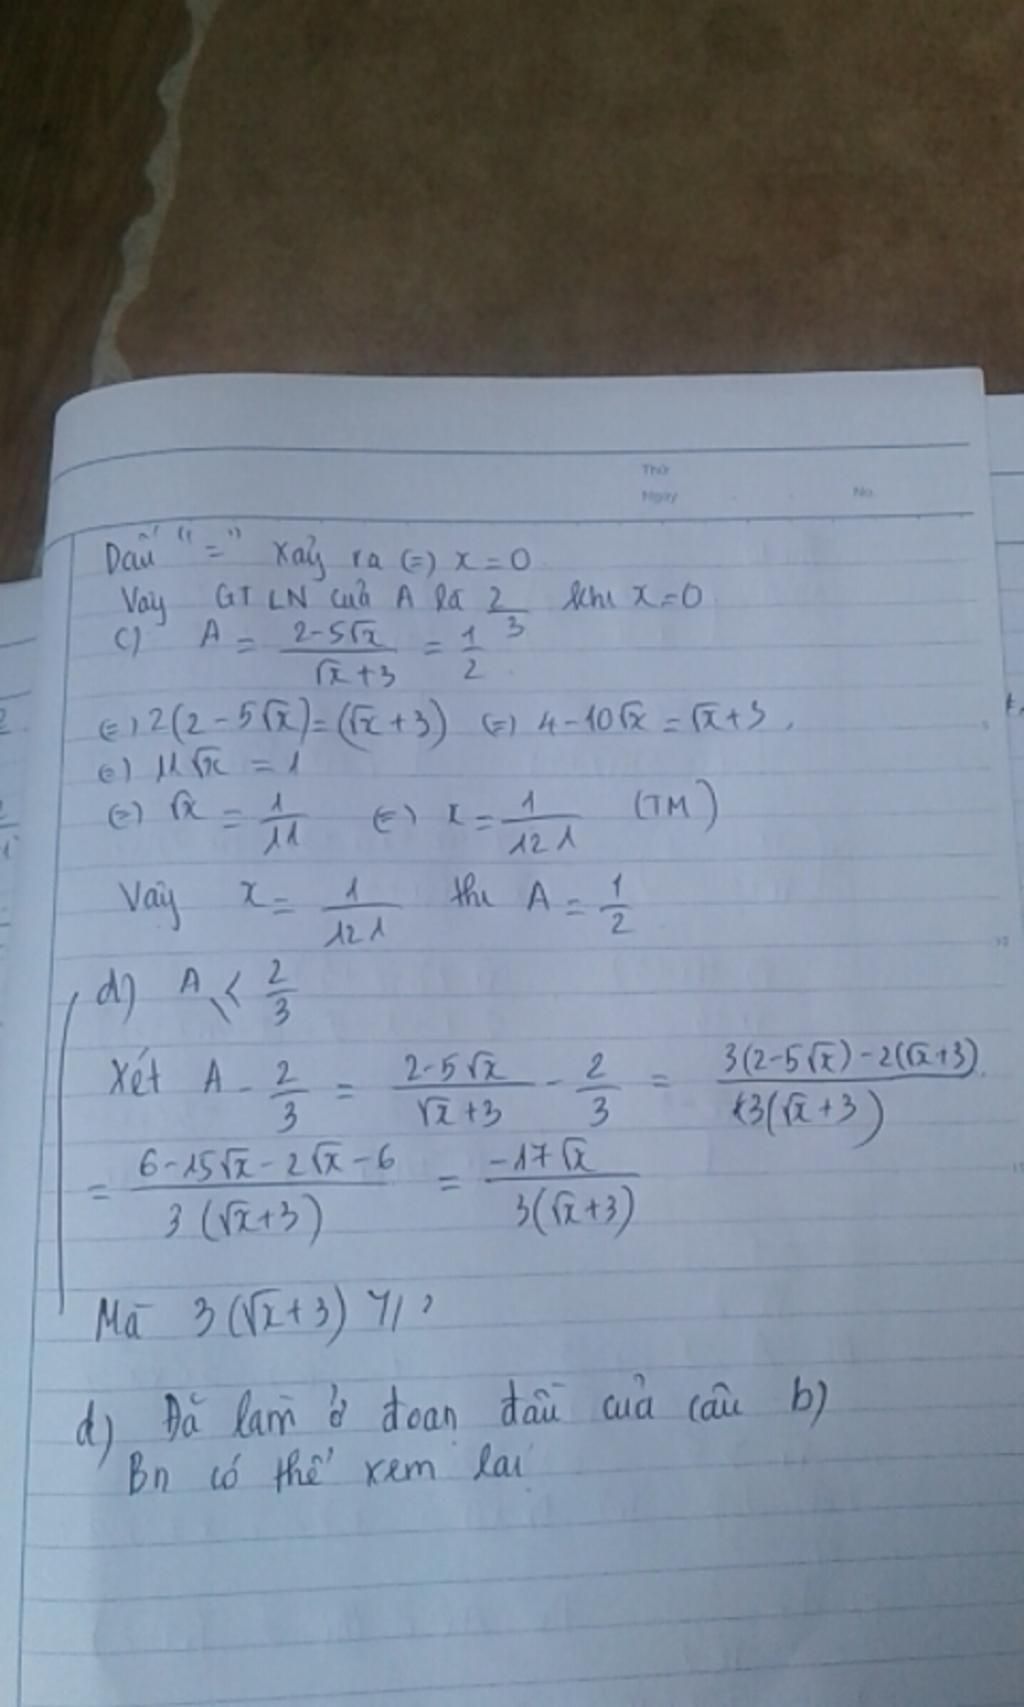 Thứ
Ngày No.
Dấu "=" xảy ra (=) x = 0
Vậy GTLN của A là 2/3 khi x=0
c) A = (2-5√x)/(√x+3) = 1/2
(=) 2(2-5√x)=(√x+3) (=) 4-10√x = √x+3
(=) 11√x = 1
(=) √x = 1/11 (=) x = 1/121 (TM)
Vậy x = 1/121 thì A = 1/2
d) A ≤ 2/3
Xét A - 2/3 = (2-5√x)/(√x+3) - 2/3 = (3(2-5√x)-2(√x+3))/(3(√x+3))
= (6-15√x-2√x-6)/(3(√x+3)) = (-17√x)/(3(√x+3))
Mà 3(√x+3)
d) Đã làm ở đoạn đầu của câu b)
Bn có thể xem lại